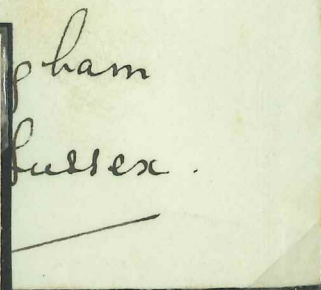 gham
Sussex.